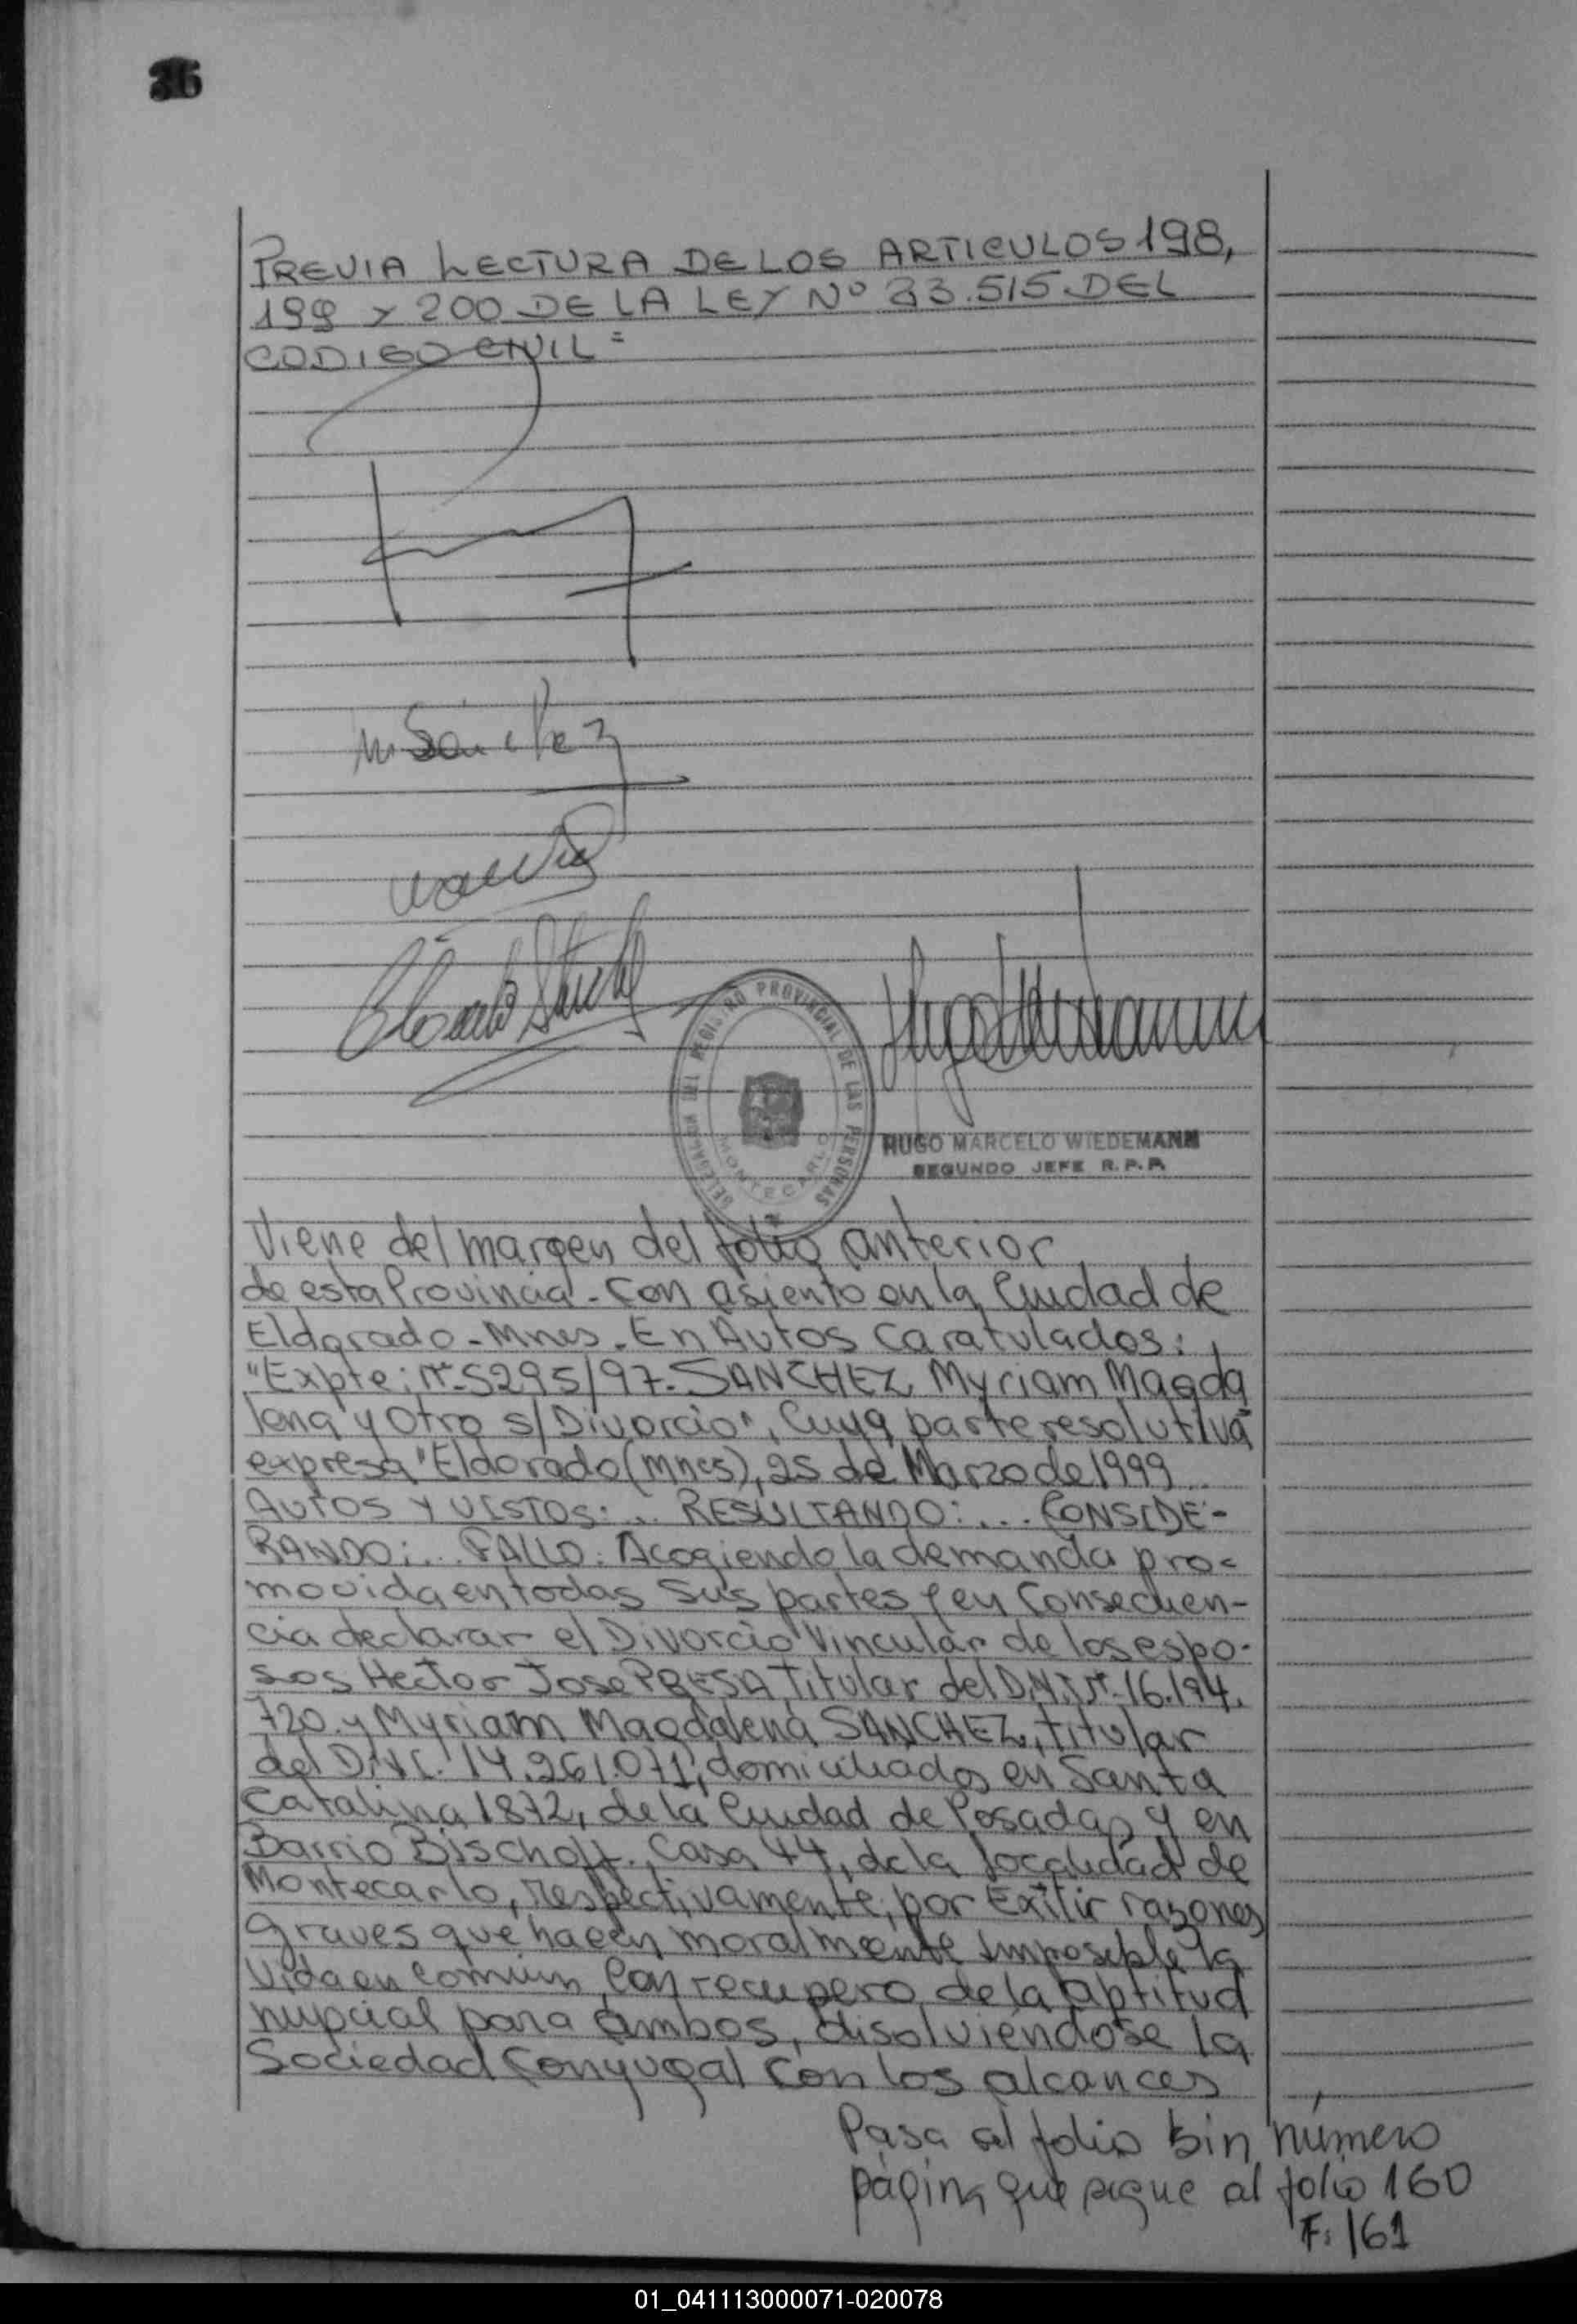 36
PREVIA LECTURA DE LOS ARTICULOS 198,
199 y 200 DE LA LEY Nº 23.515 DEL
CODIGO CIVIL=
M. Sánchez
DELEGACION DEL REGISTRO PROVINCIAL DE LAS PERSONAS
MONTECARLO
HUGO MARCELO WIEDEMANN
SEGUNDO JEFE R.P.P.
Viene del margen del folio anterior
de esta Provincia - Con asiento en la Ciudad de
Eldorado - Mnes. En Autos Caratulados:
"Expte; Nº 5295/97. SANCHEZ Myriam Magda
lena y Otro s/Divorcio", Cuya parte resolutiva
expresa "Eldorado (Mnes), 25 de Marzo de 1999...
AUTOS Y VISTOS: .. RESULTANDO: ... CONSIDE-
RANDO: ... FALLO: Acogiendo la demanda pro-
movida en todas sus partes y en Consecuen-
cia declarar el Divorcio Vincular de los espo-
sos Hector Jose PRESA, Titular del D.N.I. Nº 16.194.
720. y Myriam Magdalena SANCHEZ, titular
del D.N.I. 14.261.071, domiciliados en Santa
Catalina 1872, de la Ciudad de Posadas y en
Barrio Bischoff., Casa 44, de la localidad de
Montecarlo, respectivamente, por Exitir razones
graves que hacen moralmente Imposible la
Vida en común, Con recupero de la aptitud
nupcial para ambos, disolviéndose la
Sociedad Conyugal con los alcances
Pasa al folio sin número
página que sigue al folio 160
F: 161
01_041113000071-020078